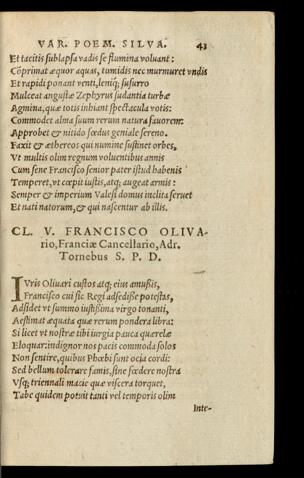 VAR. POEM. SILVA. 43
Et tacitis sublapsa vadis se flumina voluant:
Cōprimat æquor aquas, tumidis nec murmuret vndis
Et rapidi ponant venti, leniq; susurro
Mulceat angustæ Zephyrus sudantia turbæ
Agmina, quæ totis inhiant spectacula votis:
Commodet alma suum rerum natura fauorem:
Approbet & nitido fœdus geniale sereno.
Faxit & æthereos qui numine sustinet orbes,
Vt multis olim regnum voluentibus annis
Cum sene Francisco senior pater istud habenis
Temperet, vt cœpit iustis, atq; augeat armis:
Semper & imperium Valesi domus inclita seruet
Et nati natorum, & qui nascentur ab illis.
CL. V. FRANCISCO OLIVA-
rio, Franciæ Cancellario, Adr.
Tornebus S. P. D.
IVris Oliuari custos atq; eius amußis,
Francisco cui sic Regi adsediße potestas,
Adsidet vt summo iustißima virgo tonanti,
Aestimat æquata quæ rerum pondera libra:
Si licet vt nostræ tibi iurgia pauca querelæ
Eloquar: indignor nos pacis commoda solos
Non sentire, quibus Phœbi sunt ocia cordi:
Sed bellum tolerare famis, sine fœdere nostra
Vsq; triennali macie quæ viscera torquet,
Tabe quidem potuit tanti vel temporis olim
Inte-